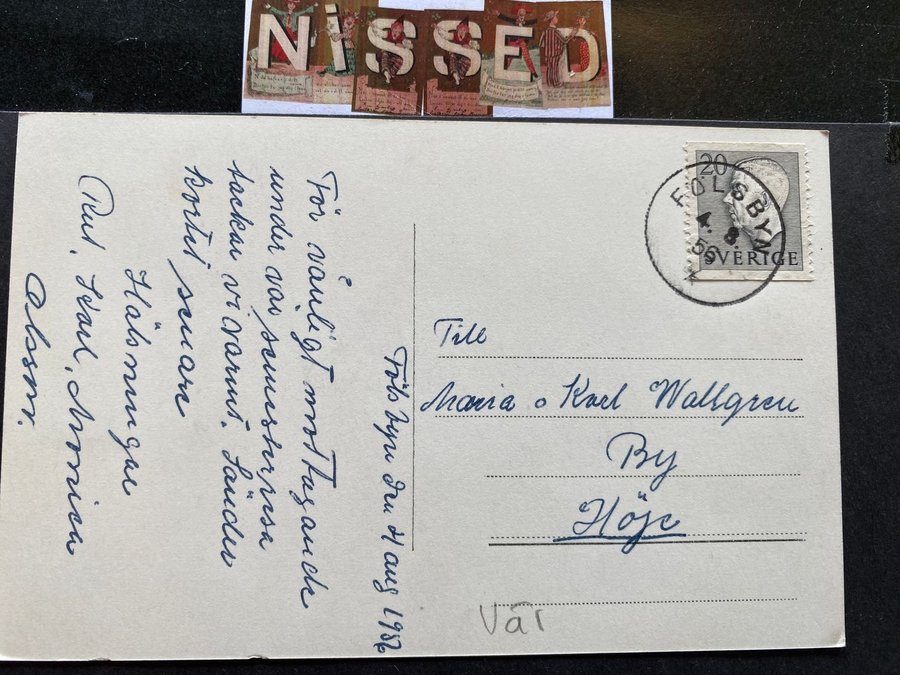 NISSED
20
SVERIGE
FÖLSBYN
4. 8.
56
Fölsbyn den 4 aug 1956
För vänligt mottagande
under vår semesterresa
tackar vi varmt. Sänder
kortet senare
Hälsningar
Rut, Karl, Monica
Olsson.
Till
Maria o Karl Wallgren
By
Höje
Vär